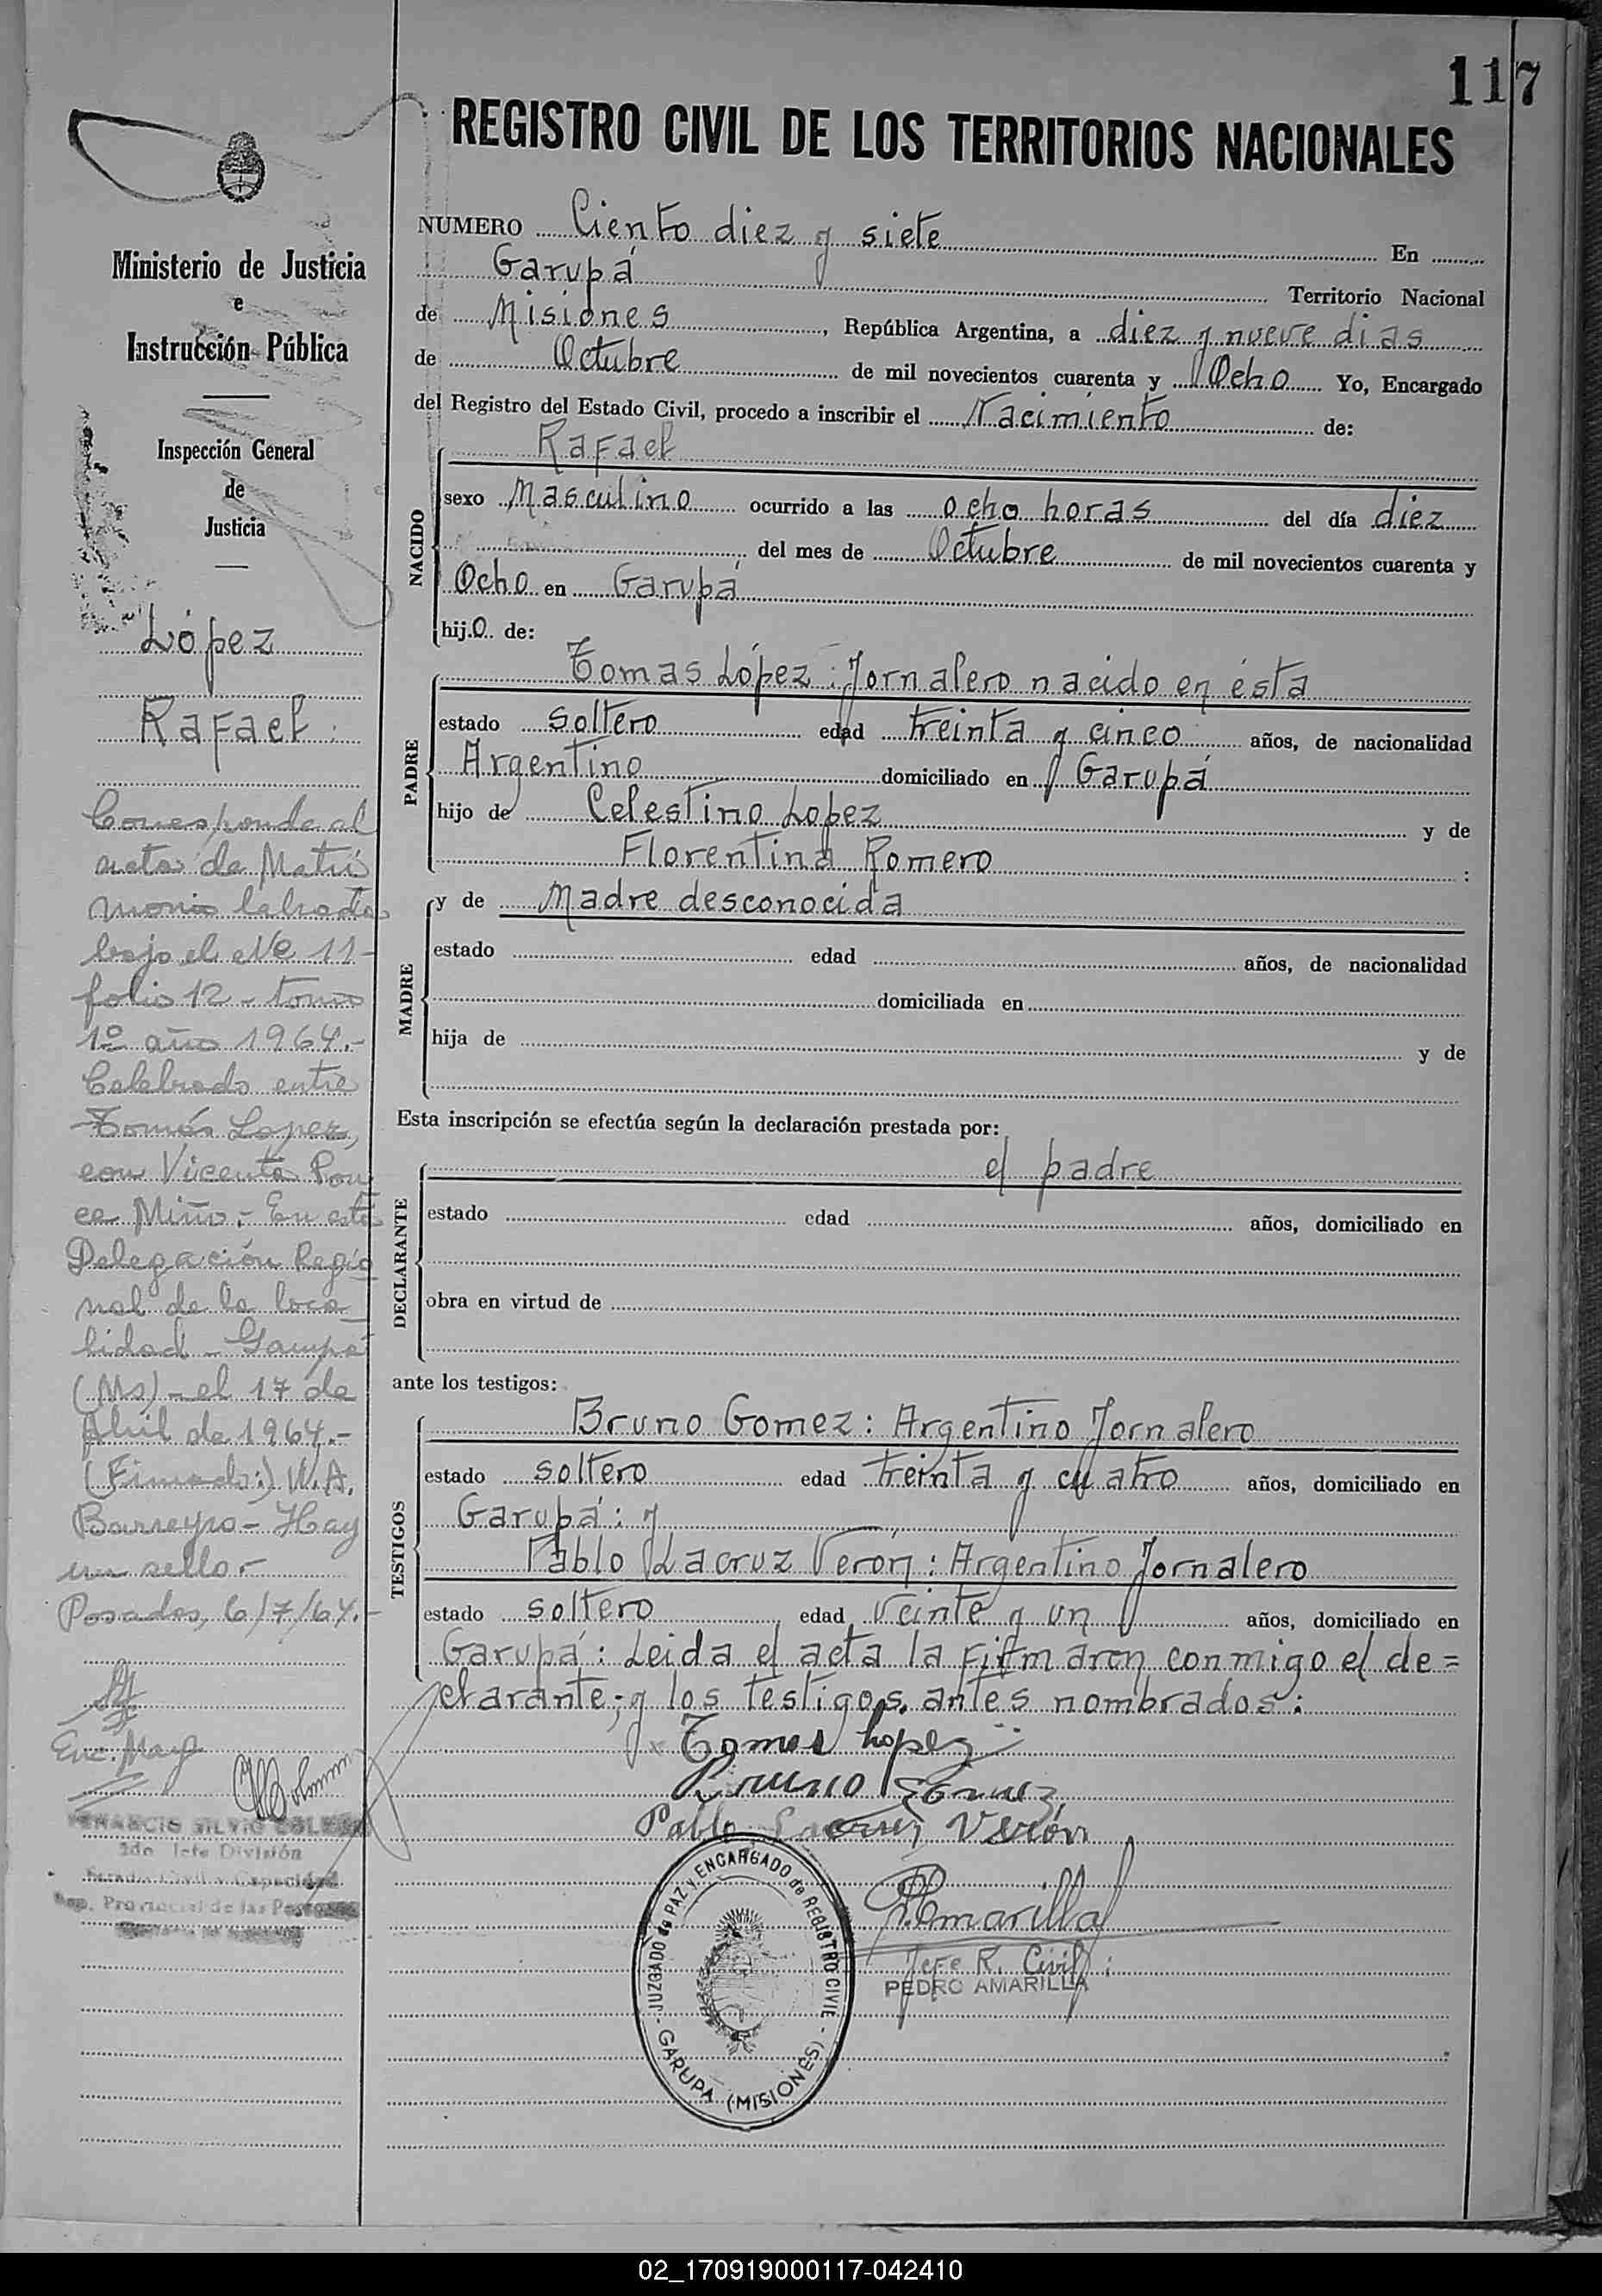 117
REGISTRO CIVIL DE LOS TERRITORIOS NACIONALES
Ministerio de Justicia
e
Instrucción Pública
Inspección General
de
Justicia
López
Rafael:
Corresponde al
acta de Matri
monio labrada
bajo el Nº 11-
folio 12 - tomo
1º año 1964.-
Celebrado entre
Tomás Lopez,
con Vicenta Pon
ce Miño.- En esta
Delegación Regio
nal de la loca_
lidad - Garupá
(Ms) - el 17 de
Abril de 1964.-
(Firmado:) V.A.
Barreyro - Hay
un sello.-
Posadas, 6/7/64.-
Enc. May
SILVIO
2do Jefe División
Capacidad
Rep. Provincial de las Personas
NUMERO Ciento diez y siete En
Garupá Territorio Nacional
de Misiones, República Argentina, a diez y nueve dias
de Octubre de mil novecientos cuarenta y Ocho Yo, Encargado
del Registro del Estado Civil, procedo a inscribir el Nacimiento de:
NACIDO
Rafael
sexo Masculino ocurrido a las ocho horas del día diez
del mes de Octubre de mil novecientos cuarenta y
Ocho en Garupá
hij.O. de:
PADRE
Tomas López: Jornalero nacido en ésta
estado soltero edad treinta y cinco años, de nacionalidad
Argentino domiciliado en Garupá
hijo de Celestino Lopez y de
Florentina Romero :
MADRE
y de Madre desconocida
estado edad años, de nacionalidad
domiciliada en
hija de y de
Esta inscripción se efectúa según la declaración prestada por:
DECLARANTE
el padre
estado edad años, domiciliado en
obra en virtud de
ante los testigos:
TESTIGOS
Bruno Gomez: Argentino Jornalero
estado soltero edad treinta y cuatro años, domiciliado en
Garupá: y
Pablo Lacruz Verón: Argentino Jornalero
estado soltero edad veinte y un años, domiciliado en
Garupá: Leida el acta la firmaron conmigo el de=
clarante; y los testigos antes nombrados:
Tomas Lopez
Bruno Gomez
Pablo Lacruz Verón
P. Amarilla
Jefe R. Civil:
PEDRO AMARILLA
JUZGADO de PAZ y ENCARGADO de REGISTRO CIVIL
- GARUPA (MISIONES) -
02_170919000117-042410